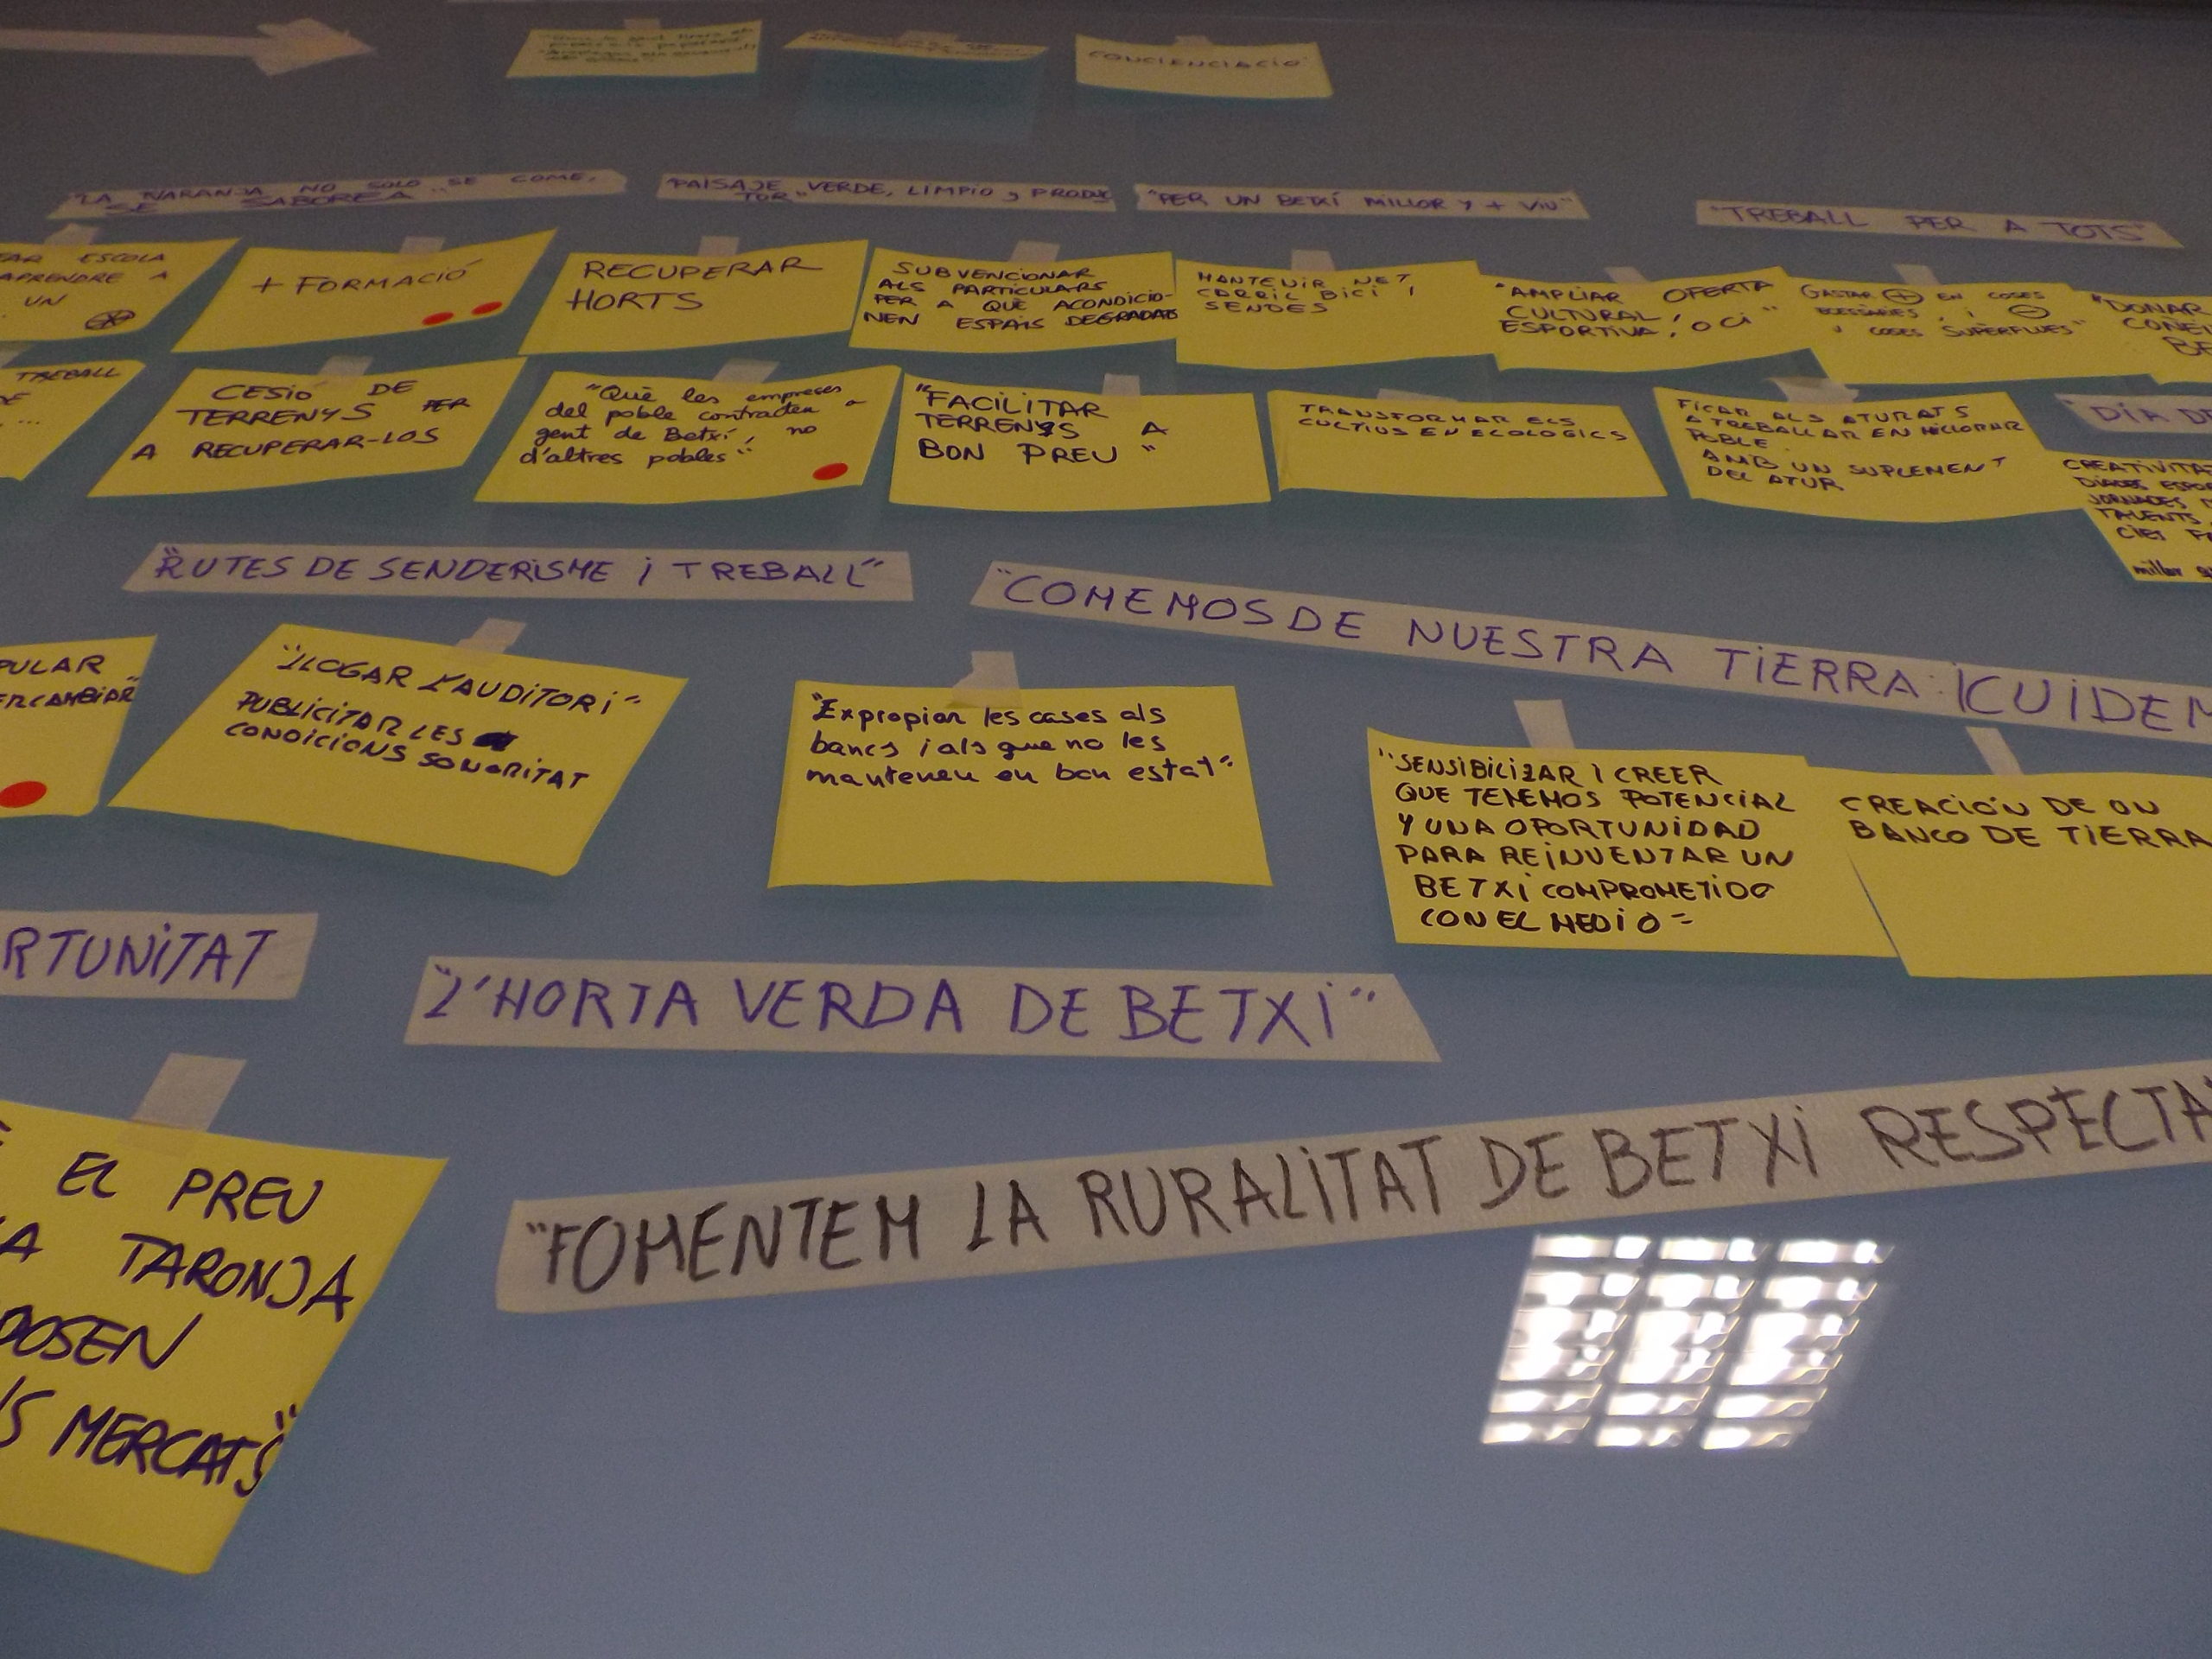 CONCIENCIACIÓ
"LA NARANJA NO SOLO SE COME,
SE SABOREA"
"PAISAJE VERDE, LIMPIO y PRODUC
TOR"
"PER UN BETXÍ MILLOR Y + VIU"
"TREBALL PER A TOTS"
ESCOLA
APRENDRE A
UN
+ FORMACIÓ
RECUPERAR
HORTS
SUBVENCIONAR
ALS PARTICULARS
PER A QUE ACONDICIO-
NEN ESPAIS DEGRADATS
MANTENIR NET,
CARRIL BICI,
SENDES
"AMPLIAR OFERTA
CULTURAL,
ESPORTIVA, OCI"
GASTAR + EN COSES
I -
COSES SUPERFLUES"
"DONAR
TREBALL
...
CESIÓ DE
TERRENYS PER
A RECUPERAR-LOS
"Què les empreses
del poble contracten a
gent de Betxí, no
d'altres pobles"
"FACILITAR
TERRENYS A
BON PREU"
TRANSFORMAR ELS
CULTIUS EN ECOLOGICS
FICAR ALS ATURATS
A TREBALLAR EN MILLORAR
POBLE
AMB UN SUPLEMENT
DEL ATUR
"DÍA D
CREATIVITA
JORNADES
TALENTS
millor
"RUTES DE SENDERISME I TREBALL"
"COMEMOS DE NUESTRA TIERRA: ¡CUIDEM
PULAR
ERCAMBIAR"
"LLOGAR L'AUDITORI"
PUBLICITAR LES
CONDICIONS SONORITAT
"Expropiar les cases als
bancs i als que no les
mantenen en bon estat"
"SENSIBILIZAR I CREER
QUE TENEMOS POTENCIAL
Y UNA OPORTUNIDAD
PARA REINVENTAR UN
BETXI COMPROMETIDO
CON EL MEDIO"
CREACIÓN DE UN
BANCO DE TIERRA
RTUNITAT
"L'HORTA VERDA DE BETXI"
EL PREU
A TARONJA
POSEN
S MERCATS"
"FOMENTEM LA RURALITAT DE BETXI RESPECTA